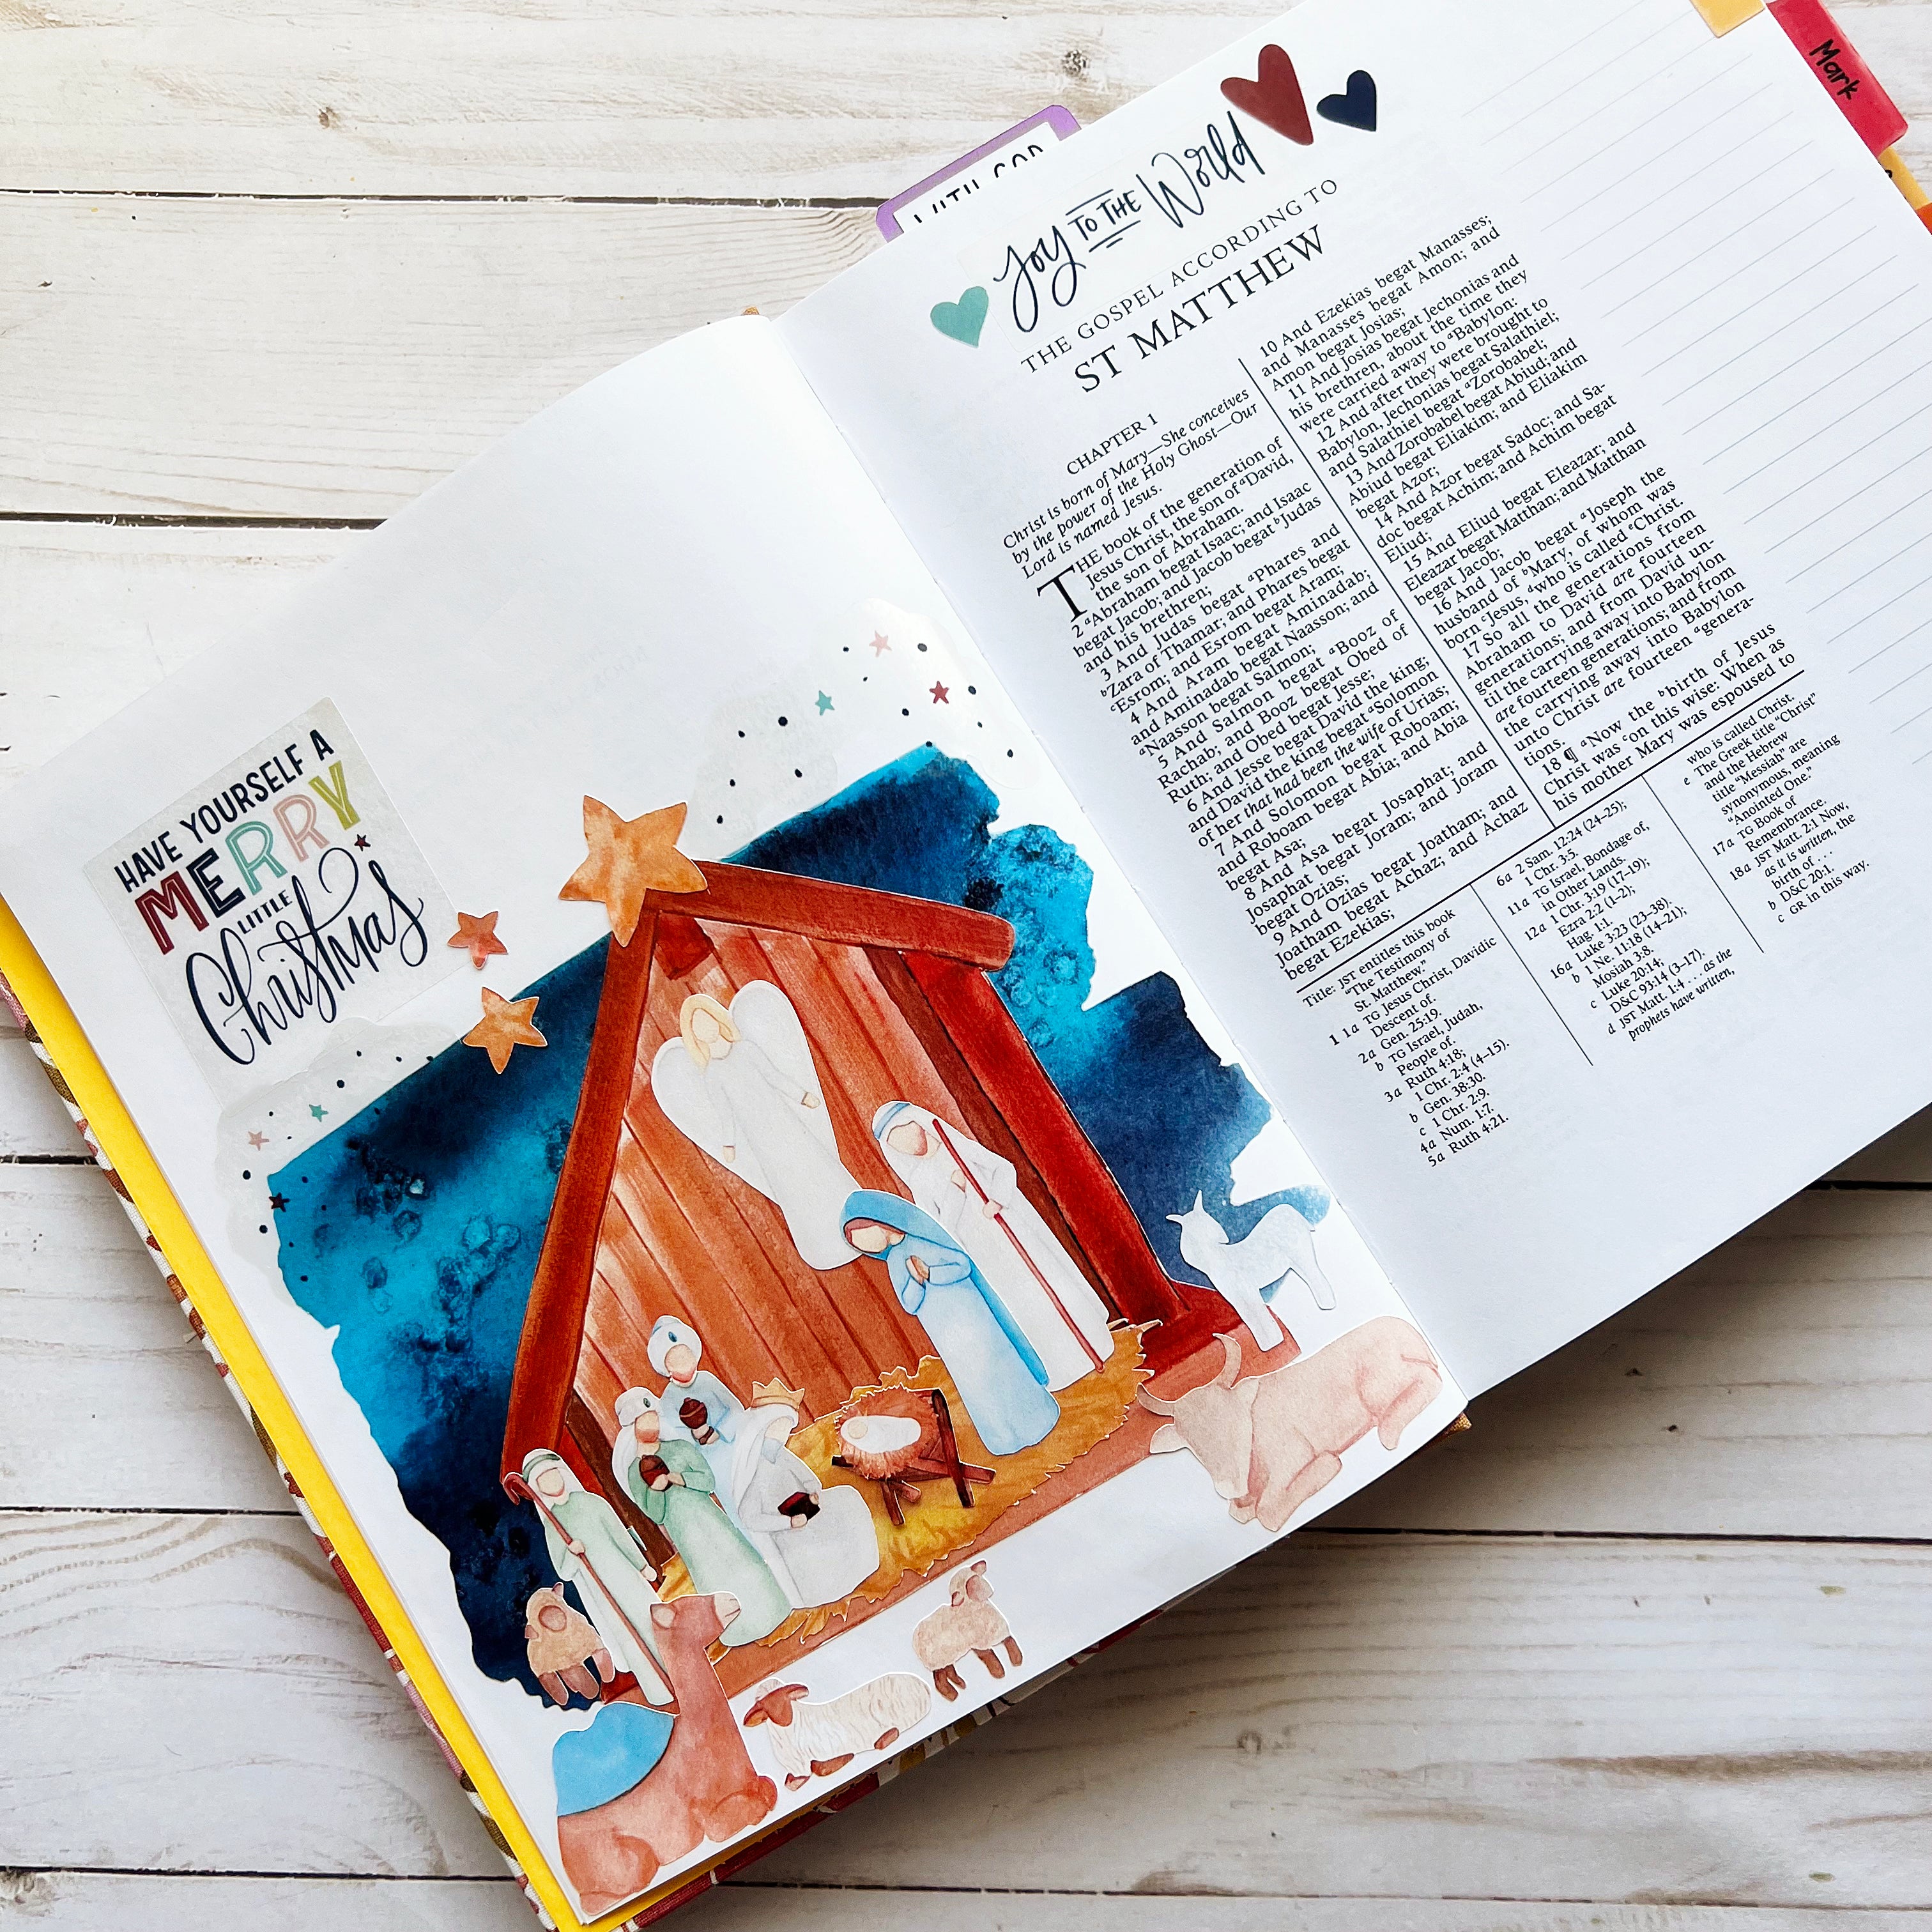 HAVE YOURSELF A
MERRY
LITTLE
Christmas
Mark
WITH GOD
Joy TO THE World
THE GOSPEL ACCORDING TO
ST MATTHEW
CHAPTER 1
Christ is born of Mary—She conceives
by the power of the Holy Ghost—Our
Lord is named Jesus.
THE book of the generation of
Jesus Christ, the son of aDavid,
the son of Abraham.
2 aAbraham begat Isaac; and Isaac
begat Jacob; and Jacob begat bJudas
and his brethren;
3 And Judas begat aPhares and
bZara of Thamar; and Phares begat
cEsrom; and Esrom begat Aram;
4 And Aram begat Aminadab;
and Aminadab begat Naasson; and
aNaasson begat Salmon;
5 And Salmon begat aBooz of
Rachab; and Booz begat Obed of
Ruth; and Obed begat Jesse;
6 And Jesse begat David the king;
and David the king begat aSolomon
of her that had been the wife of Urias;
7 And Solomon begat Roboam;
and Roboam begat Abia; and Abia
begat Asa;
8 And Asa begat Josaphat; and
Josaphat begat Joram; and Joram
begat Ozias;
9 And Ozias begat Joatham; and
Joatham begat Achaz; and Achaz
begat Ezekias;
10 And Ezekias begat Manasses;
and Manasses begat Amon; and
Amon begat Josias;
11 And Josias begat Jechonias and
his brethren, about the time they
were carried away to aBabylon:
12 And after they were brought to
Babylon, Jechonias begat Salathiel;
and Salathiel begat aZorobabel;
13 And Zorobabel begat Abiud; and
Abiud begat Eliakim; and Eliakim
begat Azor;
14 And Azor begat Sadoc; and Sa-
doc begat Achim; and Achim begat
Eliud;
15 And Eliud begat Eleazar; and
Eleazar begat Matthan; and Matthan
begat Jacob;
16 And Jacob begat aJoseph the
husband of bMary, of whom was
born cJesus, dwho is called eChrist.
17 So all the generations from
Abraham to David are fourteen
generations; and from David un-
til the carrying away into Babylon
are fourteen generations; and from
the carrying away into Babylon
unto Christ are fourteen agenera-
tions.
18 ¶ aNow the bbirth of Jesus
Christ was con this wise: When as
his mother Mary was espoused to
Title: JST entitles this book
“The Testimony of
St. Matthew.”
1 1a TG Jesus Christ, Davidic
Descent of.
2a Gen. 25:19.
b TG Israel, Judah,
People of.
3a Ruth 4:18;
1 Chr. 2:4 (4–15).
b Gen. 38:30.
c 1 Chr. 2:9.
4a Num. 1:7.
5a Ruth 4:21.
6a 2 Sam. 12:24 (24–25);
1 Chr. 3:5.
11a TG Israel, Bondage of,
in Other Lands.
12a 1 Chr. 3:19 (17–19);
Ezra 2:2 (1–2);
Hag. 1:1.
16a Luke 3:23 (23–38).
b 1 Ne. 11:18 (14–21);
Mosiah 3:8.
c Luke 20:14;
D&C 93:14 (3–17).
d JST Matt. 1:4 . . . as the
prophets have written,
who is called Christ.
e The Greek title “Christ”
and the Hebrew
title “Messiah” are
synonymous, meaning
“Anointed One.”
17a TG Book of
Remembrance.
18a JST Matt. 2:1 Now,
as it is written, the
birth of . . .
b D&C 20:1.
c GR in this way.